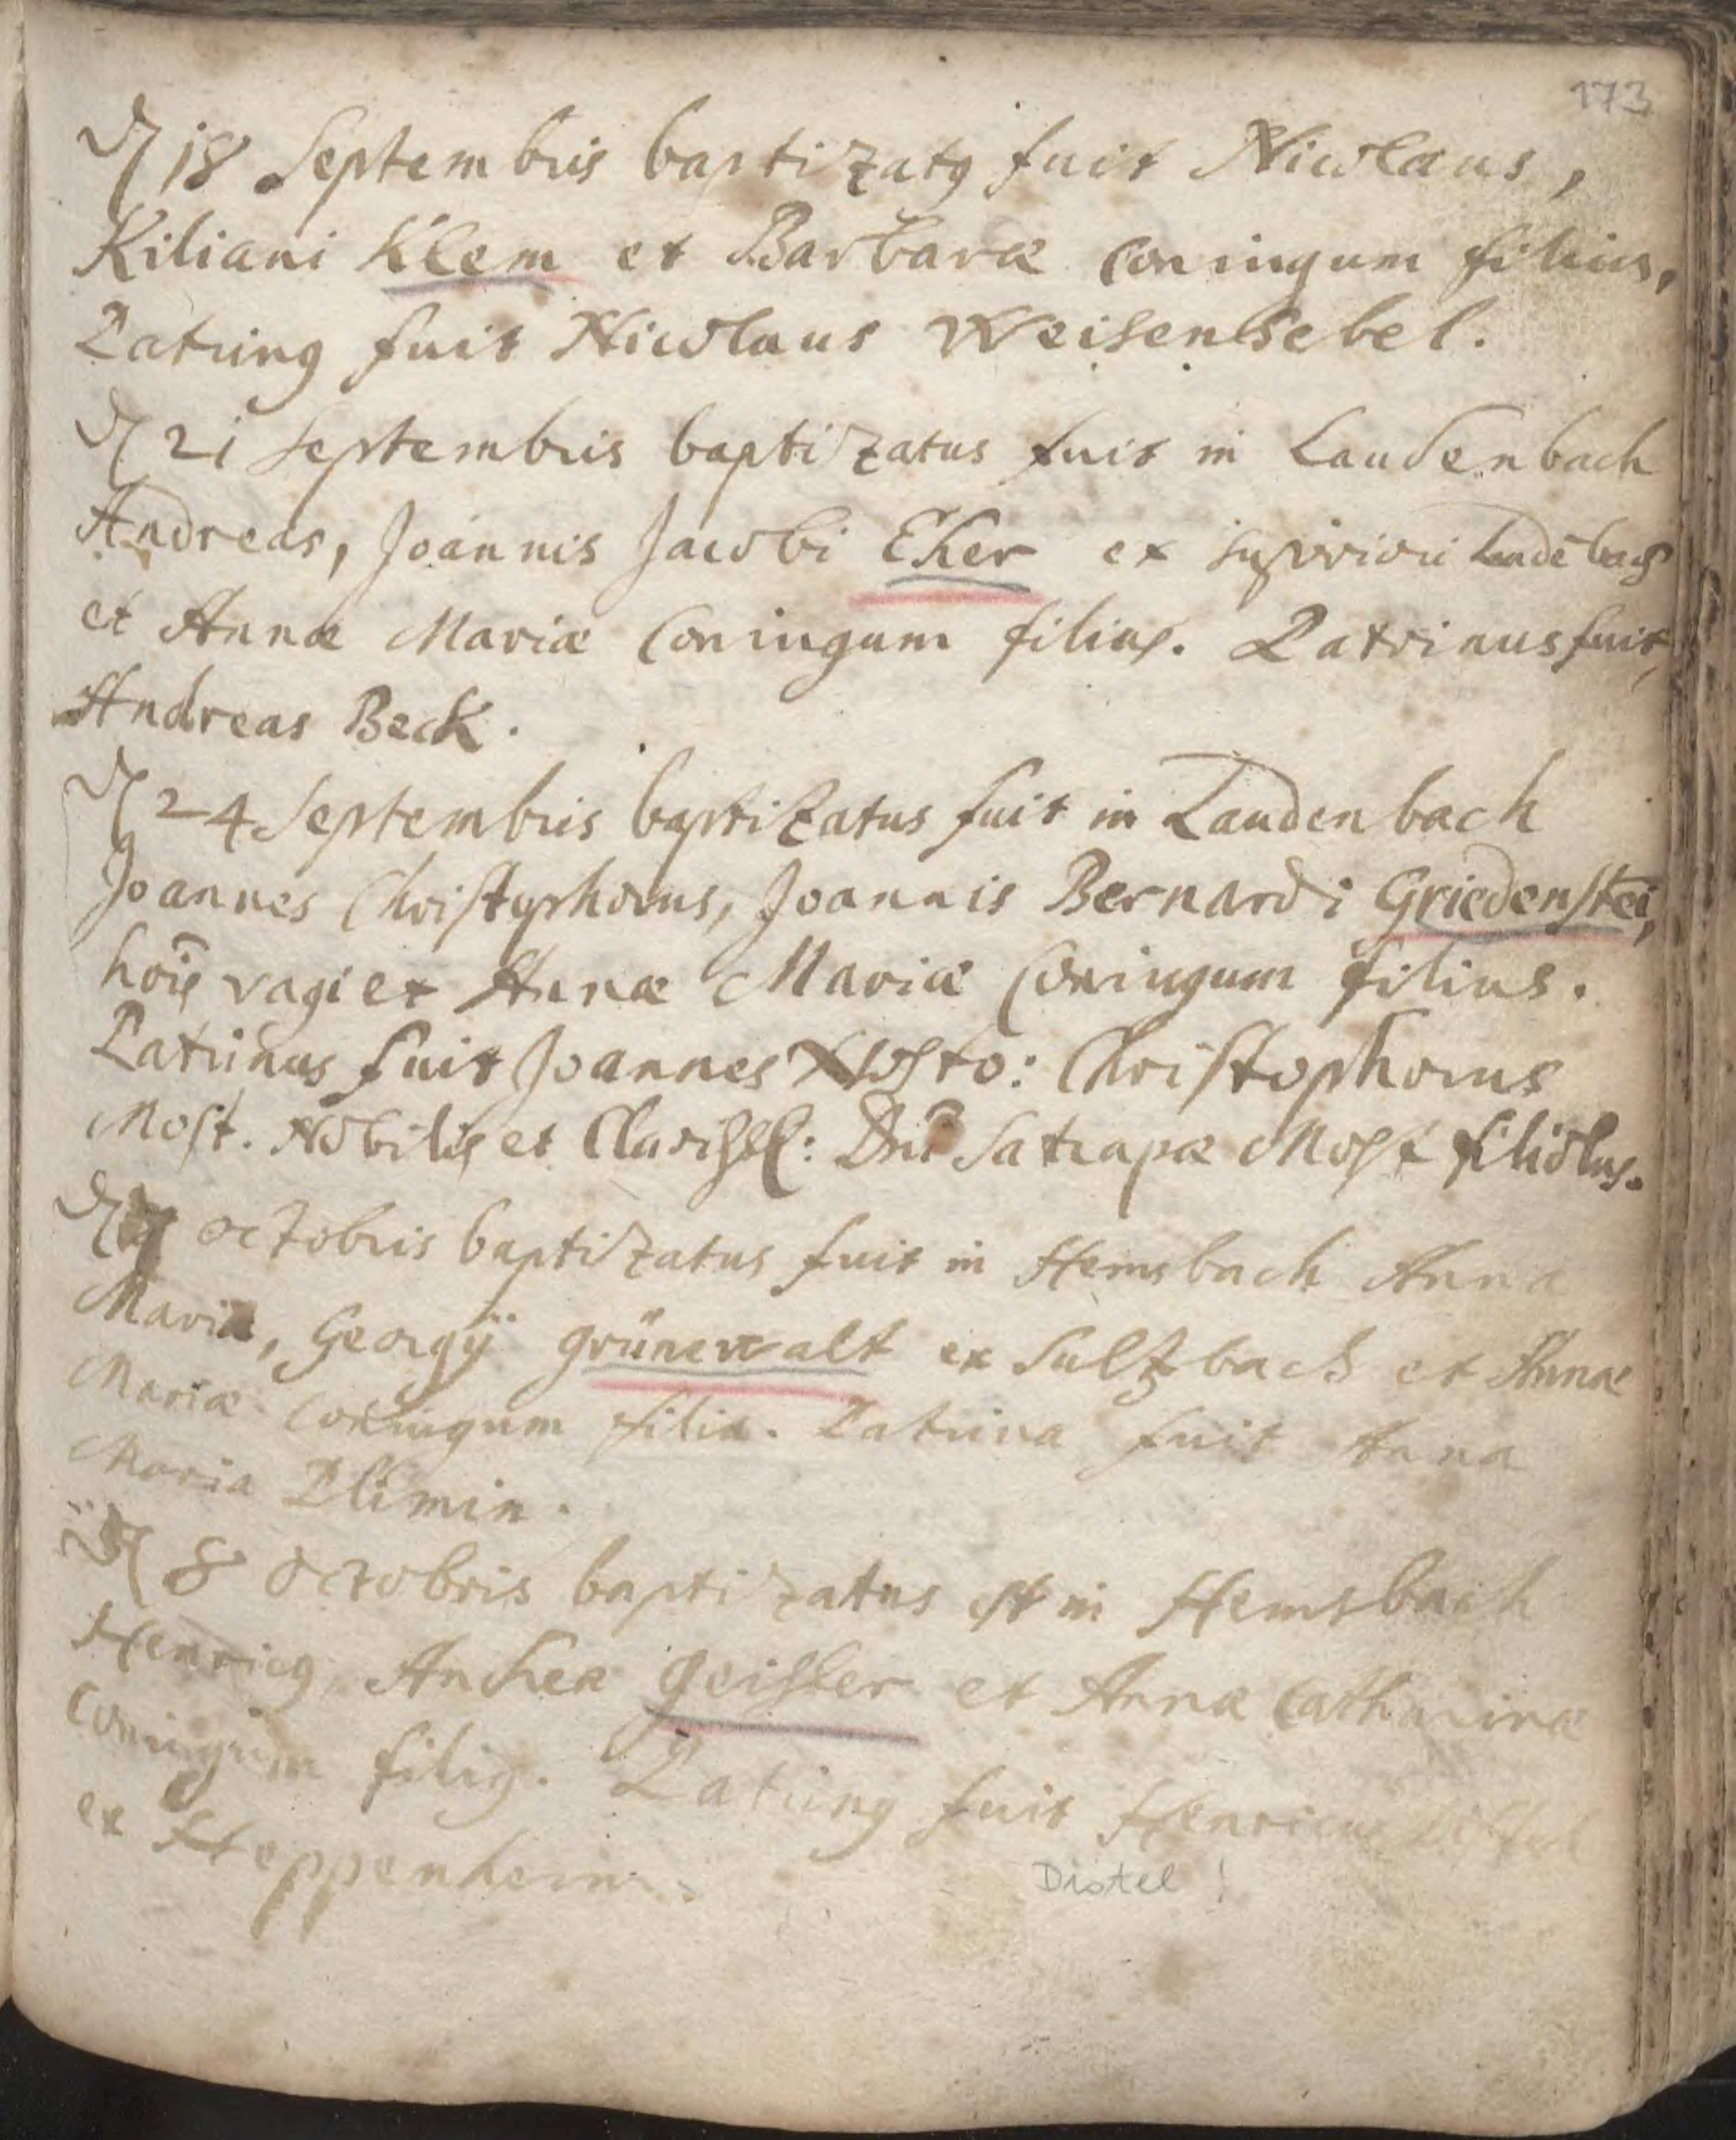 173
18 Septembris baptizatꝰ fuit Nicolaus,
Kiliani Klem et Barbaræ Coniugum filius,
Patrinꝰ fuit Nicolaus Weisensebel.
21 Septembris baptizatus fuit in Laudenbach
Andreas, Joannis Jacobi Eker ex superiori Laudēbach
et Annæ Mariæ Coniugum filius. Patrinus fuit
Andreas Beck.
24 Septembris baptizatus fuit in Laudenbach
Joannes Christophorus, Joannis Bernardi Griedenstei,
hois vagi et Annæ Mariæ Coniugum filius.
Patrinus fuit Joannes Christophorus
Most. Nobilis et Clariss: Dni Satrapæ Most filiolus.
octobris baptizatus fuit in Hemsbach Anna
Maria, Georgÿ grünewalt ex Sultzbach et Annæ
Mariæ Coniugum filia. Patrina fuit Anna
Maria Plimin.
8 octobris baptizatus est in Hemsbach
Henricꝰ, Andreæ geisler et Annæ Catharinæ
Coniugum filiꝰ. Patrinꝰ fuit Henricus
ex Heppenheim.
Distel!